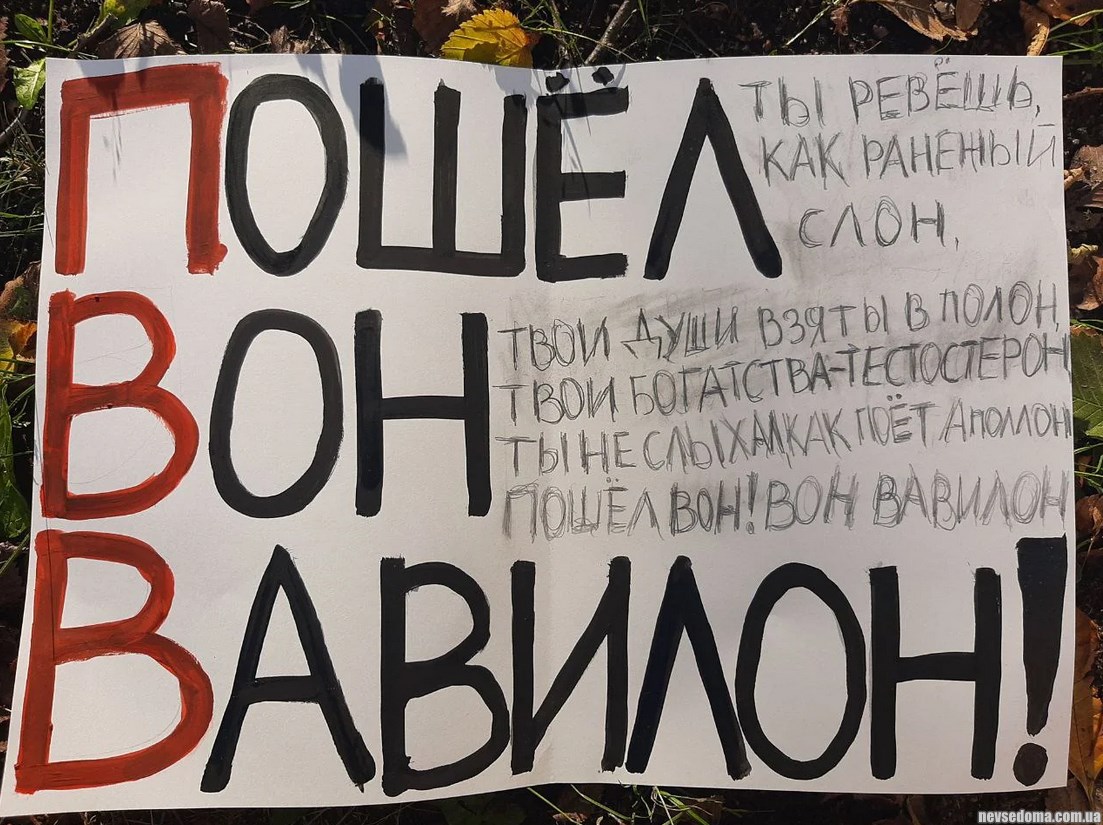 ПОШЁЛ
ТЫ РЕВЁШЬ,
КАК РАНЕНЫЙ
СЛОН,
ВОН
ТВОИ ДУШИ ВЗЯТЫ В ПОЛОН,
ТВОИ БОГАТСТВА-ТЕСТОСТЕРОН
ТЫ НЕ СЛЫХАЛ,КАК ПОЁТ АПОЛЛОН
ПОШЁЛ ВОН! ВОН ВАВИЛОН
ВАВИЛОН!
nevsedoma.com.ua